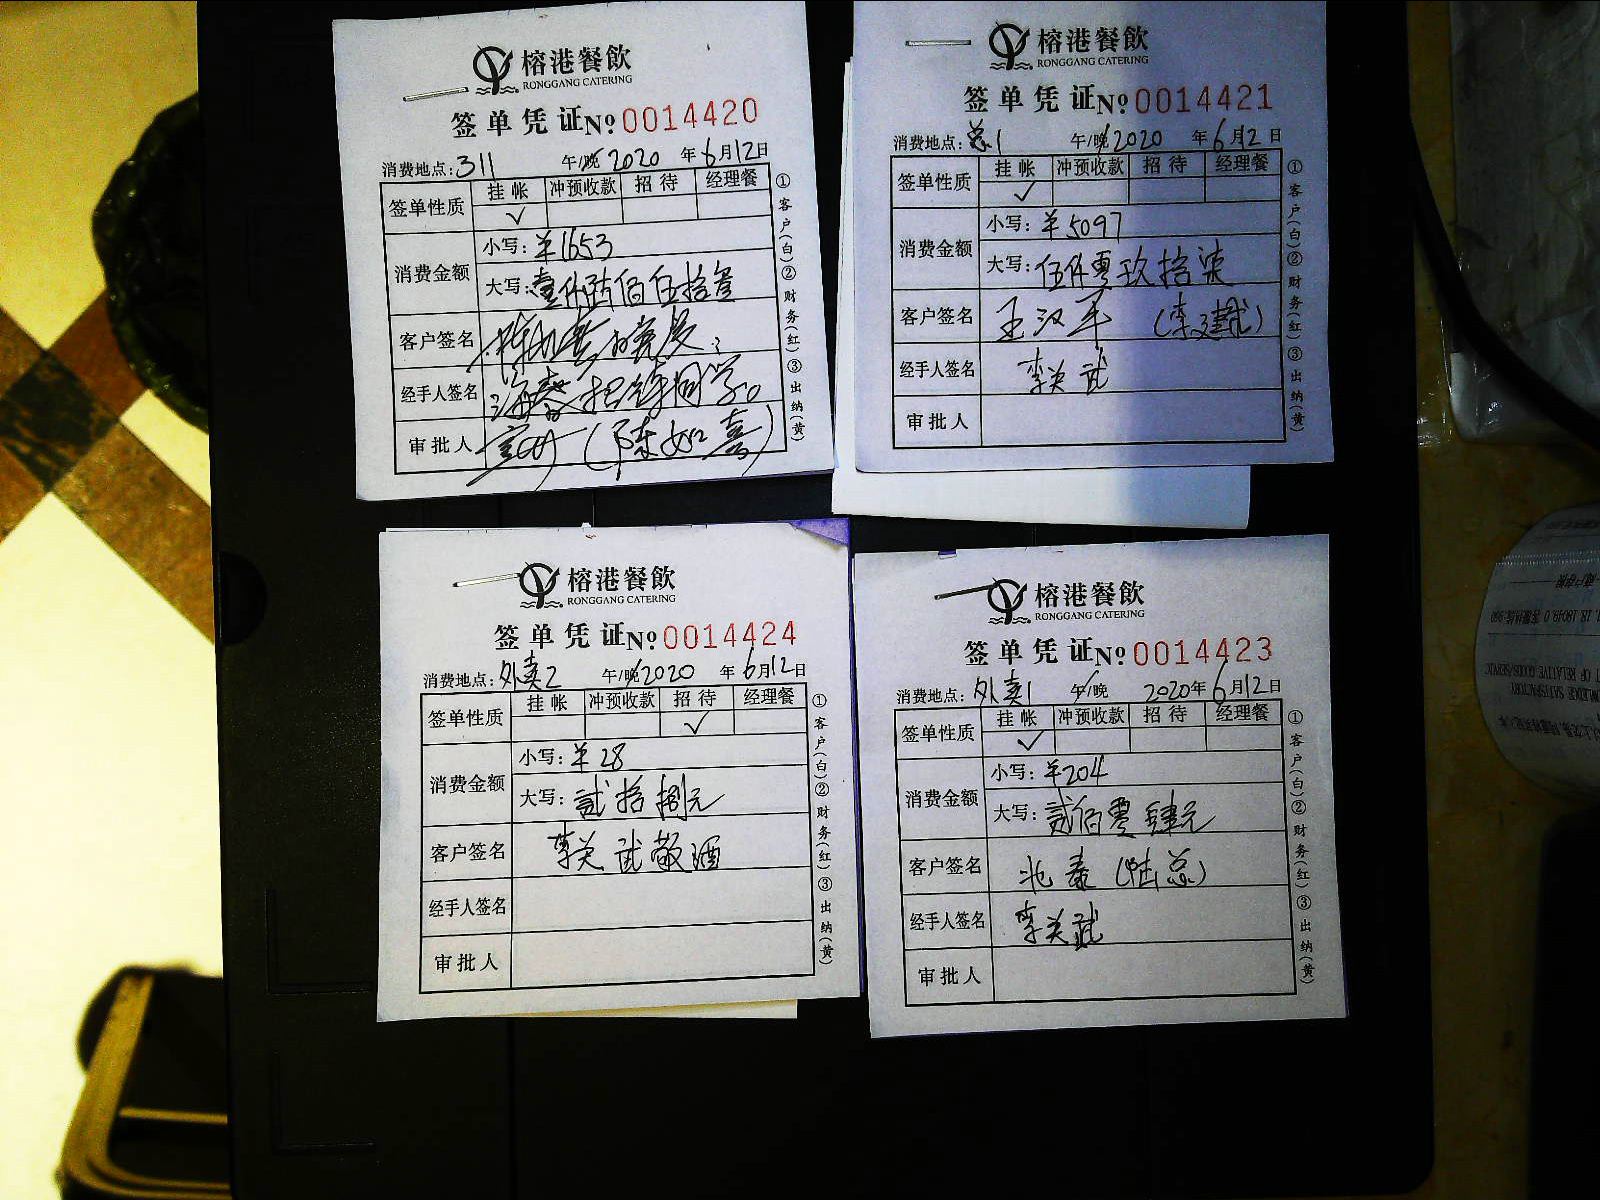 榕港餐飲
RONGGANG CATERING
签单凭证№0014420
消费地点:311 午/晚2020 年6月12日
签单性质 挂帐 冲预收款 招待 经理餐
✓
消费金额 小写:¥1653
大写:壹仟陆佰伍拾叁
客户签名
经手人签名
审批人 (陈如喜)
①客户(白)②财务(红)③出纳(黄)
榕港餐飲
RONGGANG CATERING
签单凭证№0014421
消费地点:总1 午/晚2020 年6月12日
签单性质 挂帐 冲预收款 招待 经理餐
✓
消费金额 小写:¥5097
大写:伍仟零玖拾柒
客户签名 王汉军
经手人签名 李关武
审批人
①客户(白)②财务(红)③出纳(黄)
榕港餐飲
RONGGANG CATERING
签单凭证№0014424
消费地点:外卖2 午/晚2020 年6月12日
签单性质 挂帐 冲预收款 招待 经理餐
✓
消费金额 小写:¥28
大写:贰拾捌元
客户签名 李关武敬酒
经手人签名
审批人
①客户(白)②财务(红)③出纳(黄)
榕港餐飲
RONGGANG CATERING
签单凭证№0014423
消费地点:外卖1 午/晚 2020年6月12日
签单性质 挂帐 冲预收款 招待 经理餐
✓
消费金额 小写:¥204
大写:贰佰零肆元
客户签名 兆泰(陆总)
经手人签名 李关武
审批人
①客户(白)②财务(红)③出纳(黄)